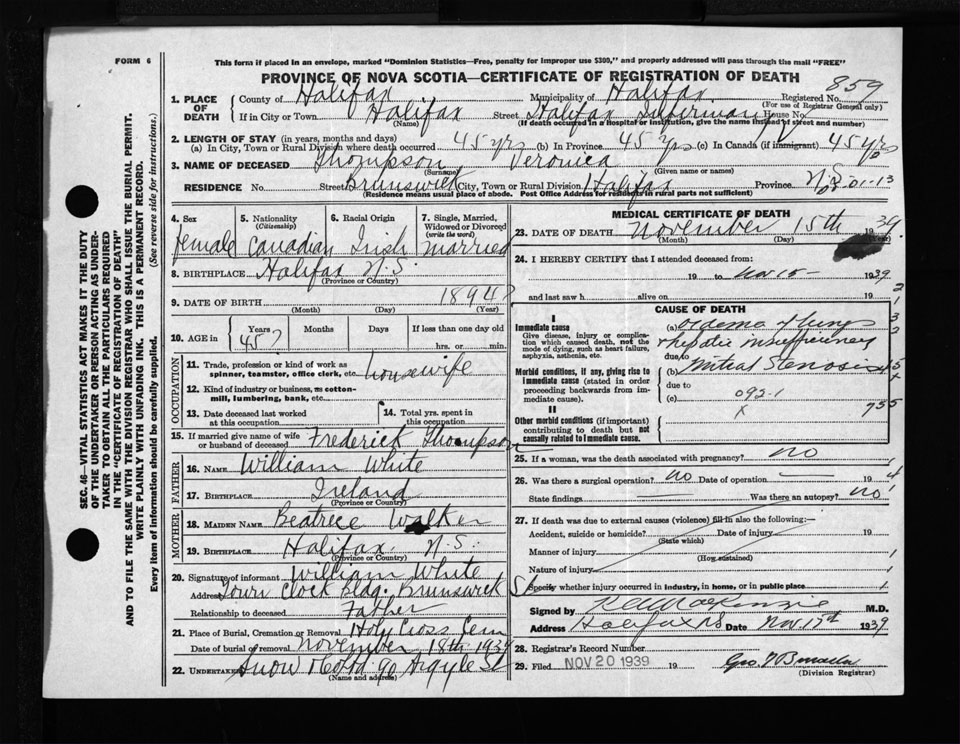 FORM 6
This form if placed in an envelope, marked "Dominion Statistics—Free, penalty for improper use $300," and properly addressed will pass through the mail "FREE"
PROVINCE OF NOVA SCOTIA—CERTIFICATE OF REGISTRATION OF DEATH
859
1. PLACE OF DEATH
County of Halifax Municipality of Halifax Registered No.
(For use of Registrar General only)
If in City or Town Halifax Street Halifax House No.
(Name) (If death occurred in a hospital or institution, give the name instead of street and number)
2. LENGTH OF STAY (in years, months and days)
(a) In City, Town or Rural Division where death occurred 45 yrs (b) In Province 45 yrs (c) In Canada (if immigrant) 45 yrs
3. NAME OF DECEASED Thompson Veronica
(Surname) (Given name or names)
RESIDENCE No. Street Brunswick City, Town or Rural Division Halifax Province N.S.
(Residence means usual place of abode. Post Office Address for residents in rural parts not sufficient)
03-01-13
4. Sex
female
5. Nationality
(Citizenship)
Canadian
6. Racial Origin
Irish
7. Single, Married, Widowed or Divorced
(write the word)
married
8. BIRTHPLACE Halifax N.S.
(Province or Country)
9. DATE OF BIRTH 1894?
(Month) (Day) (Year)
10. AGE in
Years Months Days If less than one day old
45? hrs. or min.
OCCUPATION
11. Trade, profession or kind of work as spinner, teamster, office clerk, etc. housewife
12. Kind of industry or business, as cotton-mill, lumbering, bank, etc.
13. Date deceased last worked at this occupation
14. Total yrs. spent in this occupation
15. If married give name of wife or husband of deceased Frederick Thompson
FATHER
16. NAME William White
17. BIRTHPLACE Ireland
(Province or Country)
MOTHER
18. MAIDEN NAME Beatrice Walker
19. BIRTHPLACE Halifax N.S.
(Province or Country)
20. Signature of informant William White
Address Town Clock Bldg. Brunswick St
Relationship to deceased Father
21. Place of Burial, Cremation or Removal Holy Cross Cem
Date of burial or removal November 18th 1939
22. UNDERTAKER Snow 90 Argyle St
(Name and address)
MEDICAL CERTIFICATE OF DEATH
23. DATE OF DEATH November 15th 39
(Month) (Day) (Year)
24. I HEREBY CERTIFY that I attended deceased from:
19 to Nov 15 — 1939
and last saw h alive on 19
CAUSE OF DEATH
I
Immediate cause
Give disease, injury or complication which caused death, not the mode of dying, such as heart failure, asphyxia, asthenia, etc.
(a) oedema of lungs
hepatic insufficiency
due to
Morbid conditions, if any, giving rise to immediate cause (stated in order proceeding backwards from immediate cause).
(b) mitral stenosis
due to
(c) 092-1
x
II
Other morbid conditions (if important) contributing to death but not causally related to immediate cause.
25. If a woman, was the death associated with pregnancy? no
26. Was there a surgical operation? no Date of operation 19
State findings Was there an autopsy? no
27. If death was due to external causes (violence) fill in also the following:—
Accident, suicide or homicide? Date of injury 19
(State which)
Manner of injury
(How sustained)
Nature of injury
Specify whether injury occurred in industry, in home, or in public place
Signed by MacKenzie M.D.
Address Halifax NS Date Nov. 17th 1939
28. Registrar's Record Number
29. Filed NOV 20 1939 19
(Division Registrar)
SEC. 46—VITAL STATISTICS ACT MAKES IT THE DUTY
OF THE UNDERTAKER OR PERSON ACTING AS UNDERTAKER TO OBTAIN ALL THE PARTICULARS REQUIRED
IN THE "CERTIFICATE OF REGISTRATION OF DEATH"
AND TO FILE THE SAME WITH THE DIVISION REGISTRAR WHO SHALL ISSUE THE BURIAL PERMIT.
WRITE PLAINLY WITH UNFADING INK. THIS IS A PERMANENT RECORD.
Every item of information should be carefully supplied. (See reverse side for instructions.)